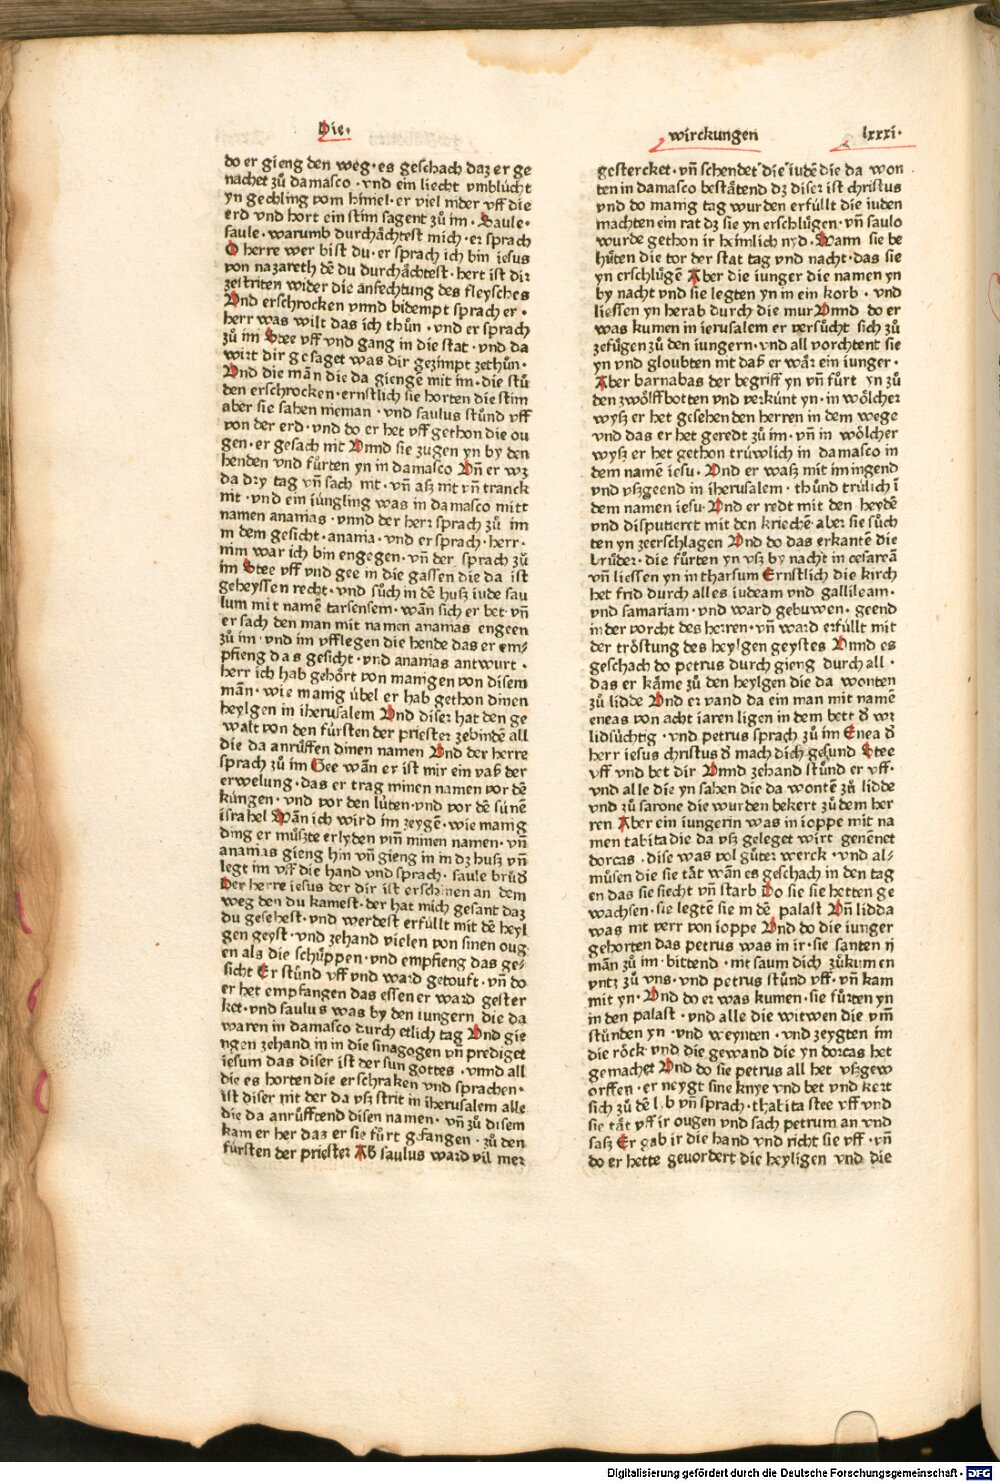 Die·
wirckungen
lxxxi·
do er gieng den weg· es geschach daz er ge
nachet zů damasco · vnd ein liecht vmblücht
yn gechling vom himel· er viel nider vff die
erd vnd hort ein stim sagent zů im · Saule·
saule · warumb durchåchtest mich · er sprach
O herre wer bist du · er sprach ich bin iesus
von nazareth dē du durchåchtest · hert ist dir
zestriten wider die anfechtung des fleysches
Vnd erschrocken vnnd bidempt sprach er ·
herr was wilt das ich thůn · vnd er sprach
zů im Stee vff vnd gang in die stat · vnd da
wirt dir gesaget was dir gezimpt zethůn·
Vnd die mān die da giengē mit im · die stů
den erschrocken · ernstlich sie horten die stim
aber sie sahen nieman · vnd saulus stůnd vff
von der erd · vnd do er het vff gethon die ou
gen · er gesach nit Vnnd sie zugen yn by den
henden vnd fůrten yn in damasco Vn̄ er wz
da dry tag vn̄ sach nit · vn̄ asz nit vn̄ tranck
nit · vnd ein iüngling was in damasco mitt
namen ananias · vnnd der herr sprach zů im
in dem gesicht · anania · vnd er sprach · herr·
nim war ich bin engegen · vn̄ der sprach zů
im Stee vff vnd gee in die gassen die da ist
geheyssen recht · vnd sůch in dē husz iude sau
lum mit namē tarsensem · wān sich er bet · vn̄
er sach den man mit namen ananias engeen
zů im · vnd im vfflegen die hende das er em⸗
pfieng das gesicht · vnd ananias antwurt ·
herr ich hab gehört von manigen von disem
mān · wie manig übel er hab gethon dinen
heylgen in iherusalem Vnd diser hat den ge
walt von den fürsten der priester zebindē all
die da anrůffen dinen namen Vnd der herre
sprach zů im Gee wān er ist mir ein vaß der
erwelung · das er trag minen namen vor dē
küngen · vnd vor den lüten · vnd vor dē sünē
israhel Wān ich wird im zeygē · wie manig
ding er můszte erlyden vm̄ minen namen · vn̄
ananias gieng hin vn̄ gieng in in dz husz vn̄
legt im vff die hand vnd sprach · saule brůd
Der herre iesus der dir ist erschinen an dem
weg den du kamest · der hat mich gesant daz
du gesehest · vnd werdest erfüllt mit dē heyl
gen geyst · vnd zehand vielen von sinen oug
en als die schüppen · vnd empfieng das ge⸗
sicht Er stůnd vff vnd ward getoufft · vn̄ do
er het empfangen das essen er ward gester
ket · vnd saulus was by den iungern die da
waren in damasco durch etlich tag Vnd gie
ngen zehand in in die sinagogen vn̄ prediget
iesum das diser ist der sun gottes · vnnd all
die es horten die erschraken vnd sprachen·
ist diser nit der da vsz strit in iherusalem alle
die da anrůfftend disen namen · vn̄ zů disem
kam er her das er sie fůrt gefangen · zů den
fürsten der priester Ab saulus ward vil mer
gestercket · vn̄ schendet die iudē die da won
ten in damasco bestätend dz diser ist christus
vnd do manig tag wurden erfüllt die iuden
machten ein rat dz sie yn erschlügen · vn̄ saulo
wurde gethon ir heimlich nyd · Wann sie be
hůten die tor der stat tag vnd nacht · das sie
yn erschlügē Aber die iunger die namen yn
by nacht vnd sie legten yn in ein korb · vnd
liessen yn herab durch die mur Vnnd do er
was kumen in ierusalem er versůcht sich zů
zefügen zů den iungern · vnd all vorchtent sie
yn vnd gloubten nit daß er wår ein iunger ·
Aber barnabas der begriff yn vn̄ fůrt yn zů
den zwölffbotten vnd verkünt yn · in wölcher
wysz er het gesehen den herren in dem wege
vnd das er het geredt zů im · vn̄ in wölcher
wysz er het gethon trüwlich in damasco in
dem namē iesu · Vnd er wasz mit im ingend
vnd vszgeend in iherusalem · thůnd trülich ī
dem namen iesu · Vnd er redt mit den heydē
vnd disputieret mit den kriechē · aber sie sůch
ten yn zeerschlagen Vnd do das erkantē die
brüder · die fůrten yn vsz by nacht in cesareā
vn̄ liessen yn in tharsum Ernstlich die kirch
het frid durch alles iudeam vnd gallileam·
vnd samariam · vnd ward gebuwen · geend
in der vorcht des herren · vn̄ ward erfüllt mit
der tröstung des heylgen geystes Vnnd es
geschach do petrus durch gieng durch all ·
das er kåme zů den heylgen die da wonten
zů lidde Vnd er vand da ein man mit namē
eneas von acht iaren ligen in dem bett d wz
lidsüchtig · vnd petrus sprach zů im Enea d
herr iesus christus d mach dich gesund Stee
vff vnd bet dir Vnnd zehand stůnd er vff·
vnd alle die yn sahen die da wontē zů lidde
vnd zů sarone die wurden bekert zů dem her
ren Aber ein iungerin was in ioppe mit na
men tabita die da vsz geleget wirt genēnet
dorcas · dise was vol gůter werck · vnd al⸗
můsen die sie tåt wān es geschach in den tag
en das sie siecht vn̄ starb Do sie sie hetten ge
wachsen · sie legtē sie in dē palast Vn̄ lidda
was nit verr von ioppe Vnd do die iunger
gehorten das petrus was in ir · sie santen ij
mān zů im · bittend · nit saum dich zůkumen
vntz zů vns · vnd petrus stůnd vff · vn̄ kam
mit yn · Vnd do er was kumen · sie fůrten yn
in den palast · vnd alle die witwen die vm̄
stůnden yn · vnd weynten · vnd zeygten im
die röck vnd die gewand die yn dorcas het
gemachet Vnd do sie petrus all het vszgew
orffen · er neygt sine knye vnd bet vnd kert
sich zů dē lyb vn̄ sprach · thabita stee vff vnd
sie tåt vff ir ougen vnd sach petrum an vnd
sasz Er gab ir die hand vnd richt sie vff · vn̄
do er hette geuordert die heyligen vnd die
Digitalisierung gefördert durch die Deutsche Forschungsgemeinschaft - DFG